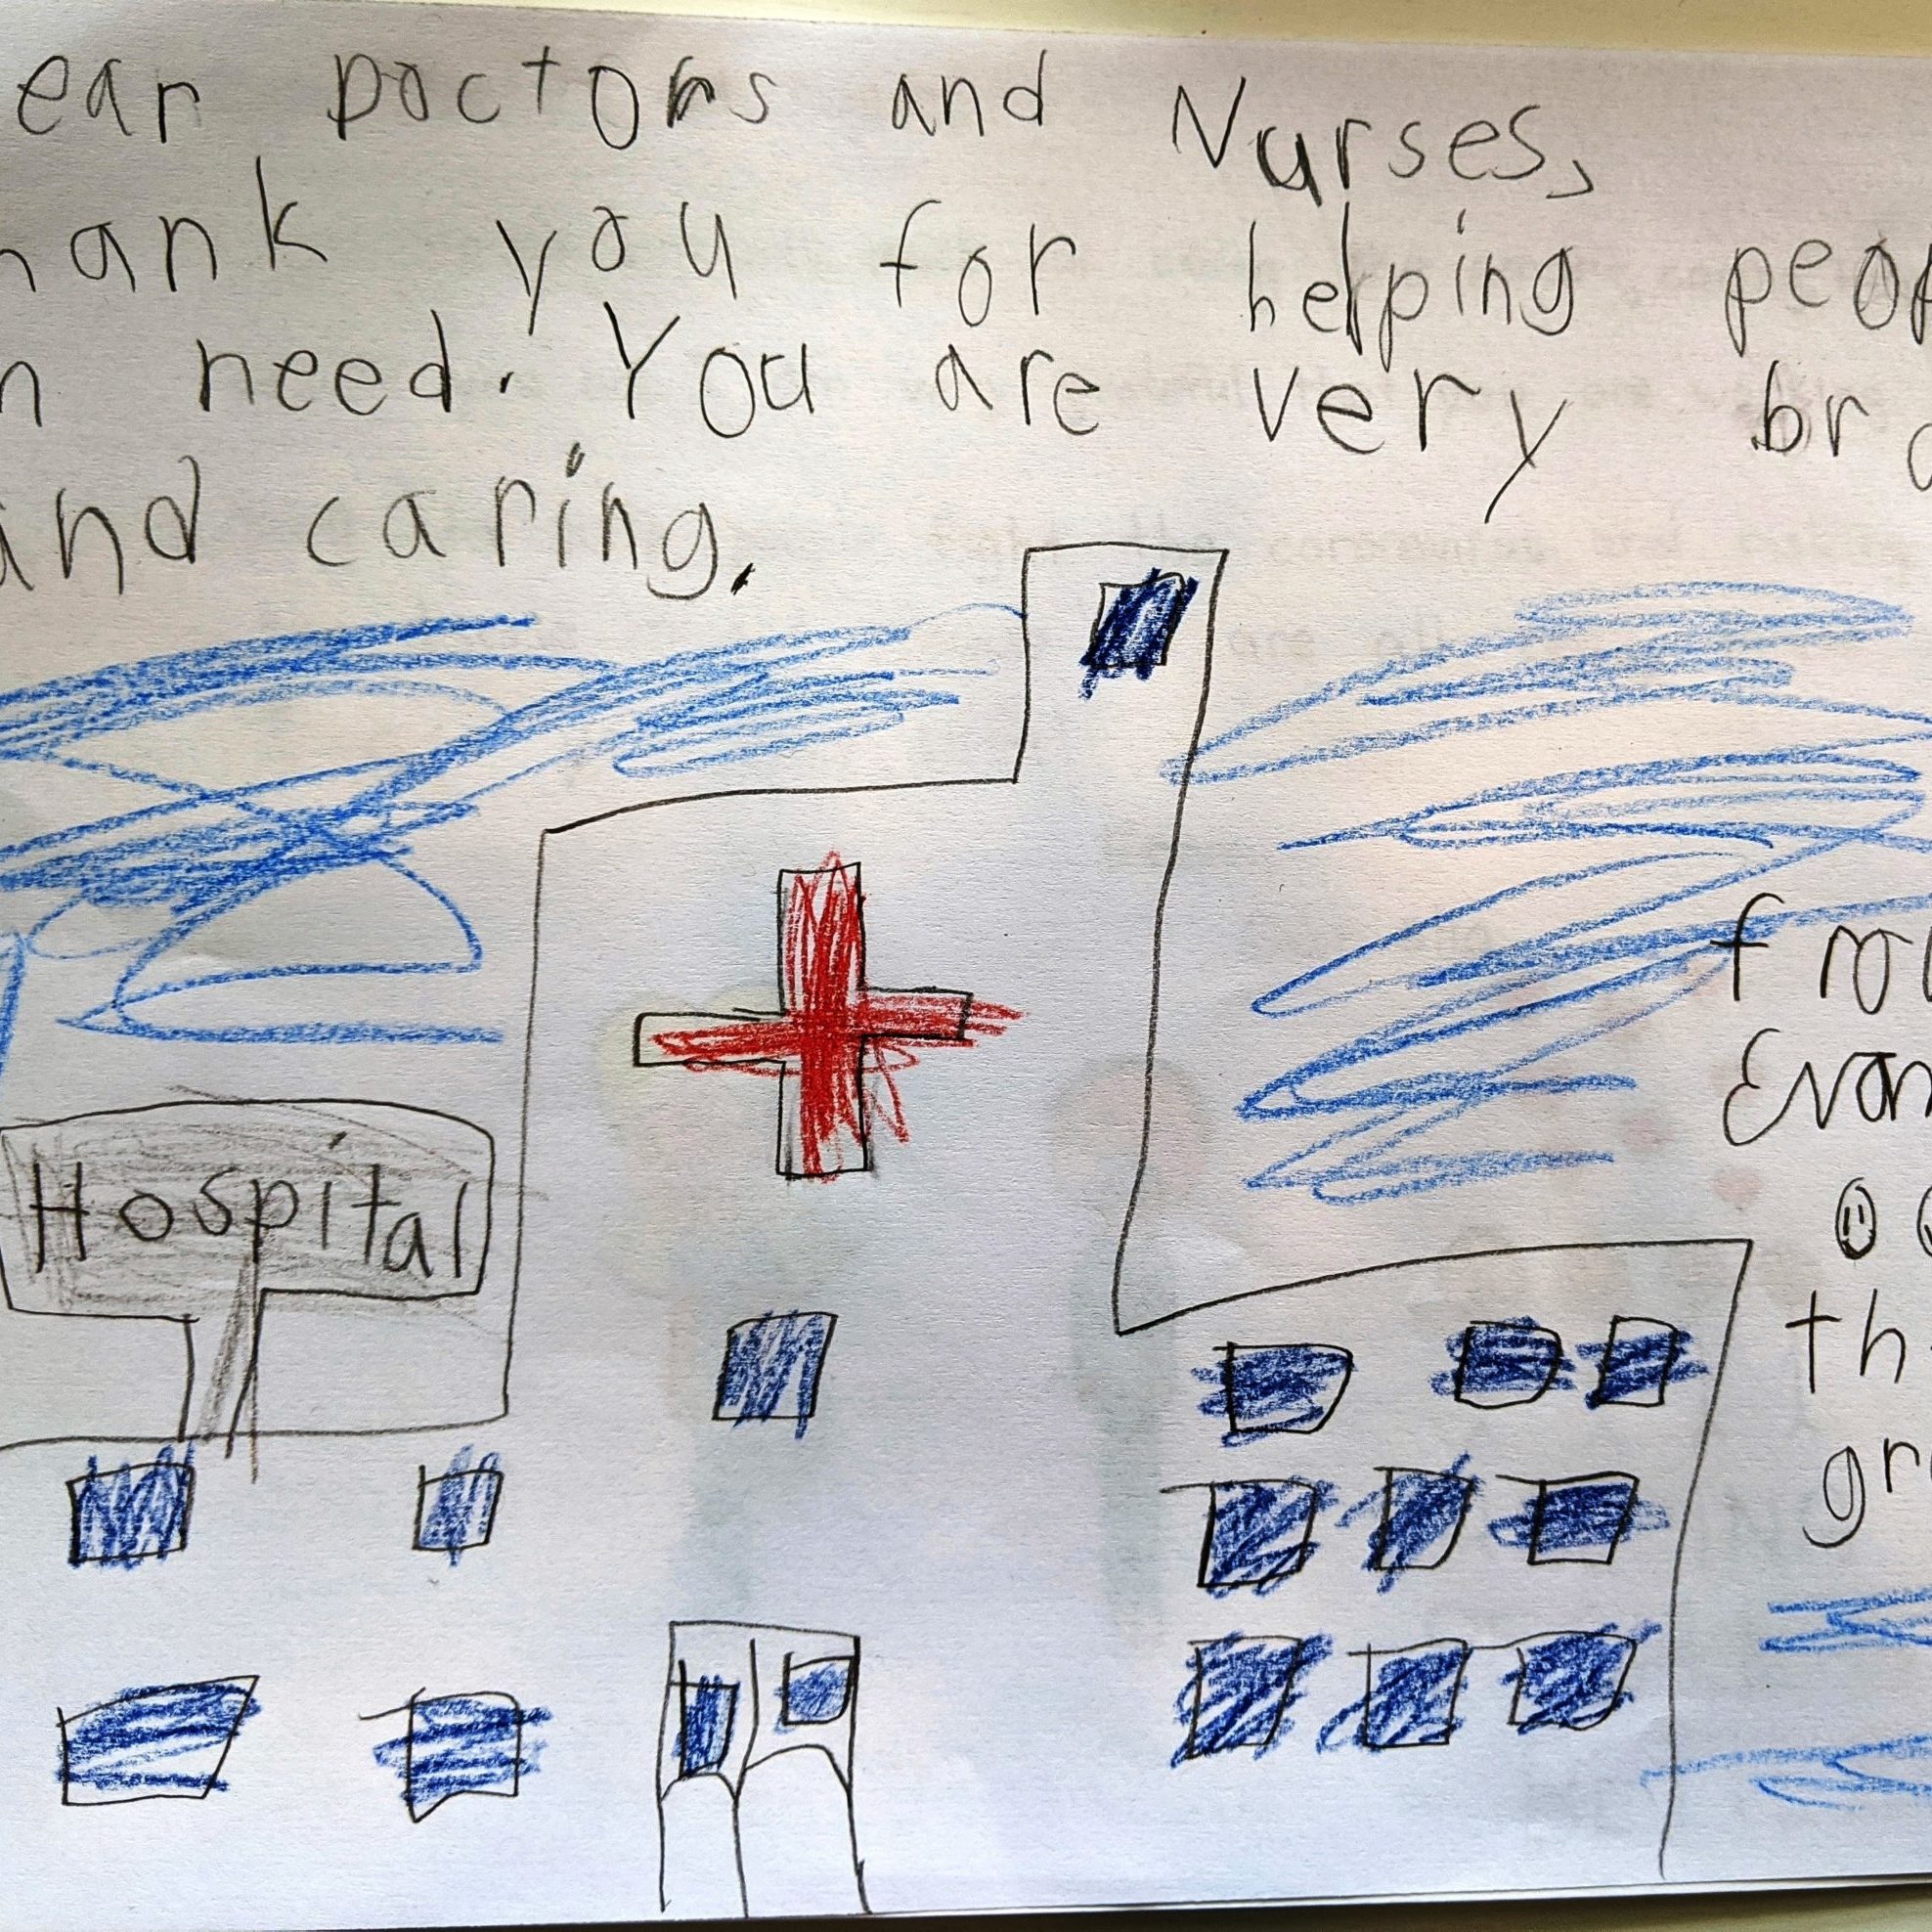 ear Doctors and Nurses,
hank you for helping peop
n need. You are very bra
and caring.
fro
Evan
Hospital
th
gr